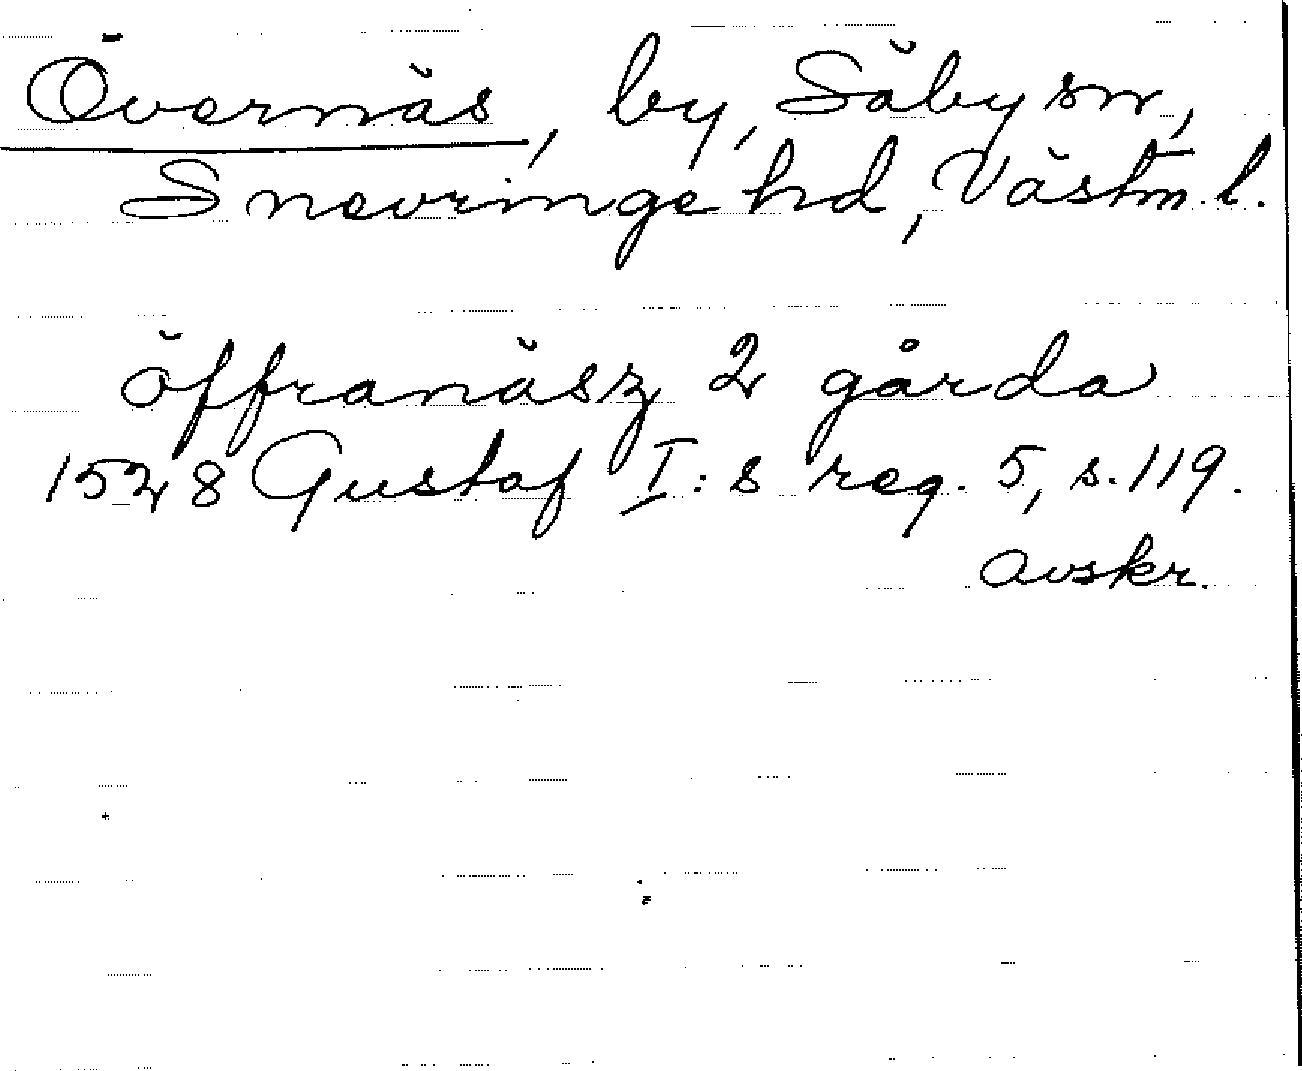 Övernäs, by, Säby sn,
Snevringe hd, Västm. l.
öffranäsz 2 gårda
1528 Gustaf I:s reg. 5, s. 119.
avskr.